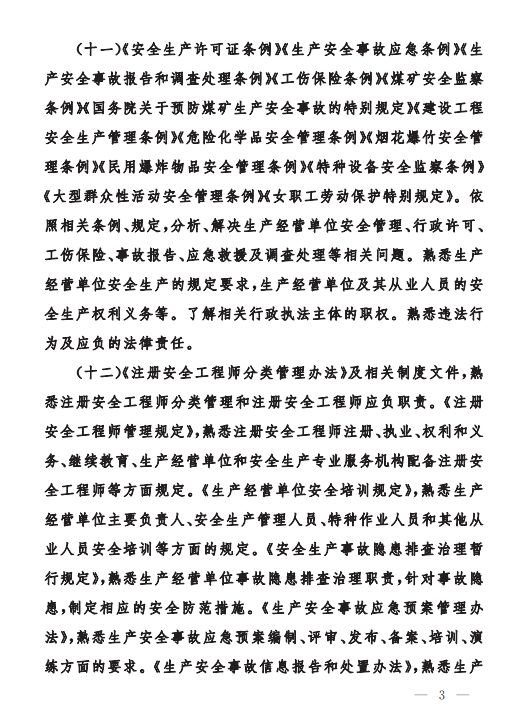 (十一)《安全生产许可证条例》《生产安全事故应急条例》《生
产安全事故报告和调查处理条例》《工伤保险条例》《煤矿安全监察
条例》《国务院关于预防煤矿生产安全事故的特别规定》《建设工程
安全生产管理条例》《危险化学品安全管理条例》《烟花爆竹安全管
理条例》《民用爆炸物品安全管理条例》《特种设备安全监察条例》
《大型群众性活动安全管理条例》《女职工劳动保护特别规定》。依
照相关条例、规定,分析、解决生产经营单位安全管理、行政许可、
工伤保险、事故报告、应急救援及调查处理等相关问题。熟悉生产
经营单位安全生产的规定要求,生产经营单位及其从业人员的安
全生产权利义务等。了解相关行政执法主体的职权。熟悉违法行
为及应负的法律责任。
(十二)《注册安全工程师分类管理办法》及相关制度文件,熟
悉注册安全工程师分类管理和注册安全工程师应负职责。《注册
安全工程师管理规定》,熟悉注册安全工程师注册、执业、权利和义
务、继续教育、生产经营单位和安全生产专业服务机构配备注册安
全工程师等方面规定。《生产经营单位安全培训规定》,熟悉生产
经营单位主要负责人、安全生产管理人员、特种作业人员和其他从
业人员安全培训等方面的规定。《安全生产事故隐患排查治理暂
行规定》,熟悉生产经营单位事故隐患排查治理职责,针对事故隐
患,制定相应的安全防范措施。《生产安全事故应急预案管理办
法》,熟悉生产安全事故应急预案编制、评审、发布、备案、培训、演
练方面的要求。《生产安全事故信息报告和处置办法》,熟悉生产
— 3 —